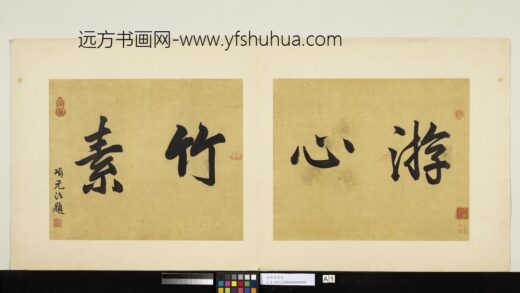 远方书画网-www.yfshuhua.com
游心竹素
項元汴題
A 1